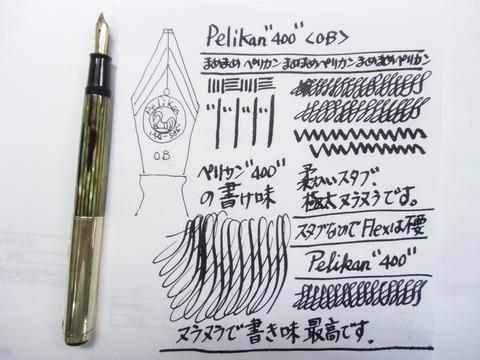 Pelikan "400" <OB>
まめまめペリカン まめまめペリカン まめまめペリカン
Pelikan
OB
ペリカン"400"
の書け味
柔らかいスタブ.
極太ヌラヌラです。
スタブなのでFlexは不要
Pelikan "400"
ヌラヌラで書き味 最高です.